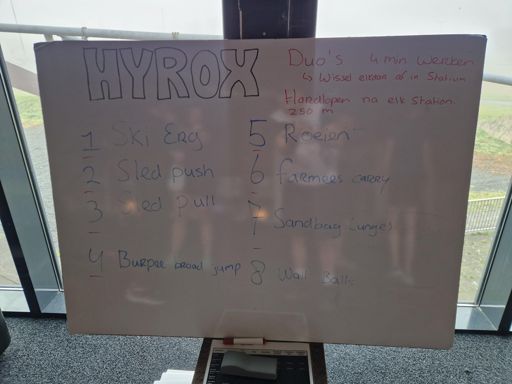 HYROX
Duo's 4 min werken
↳ Wissel elkaar af in Station
Hardlopen na elk station.
250 m
1 Ski Erg
2 Sled push
3 Sled Pull
4 Burpee broad jump
5 Roeien
6 farmers carry
7 Sandbag Lunges
8 Wall Balls